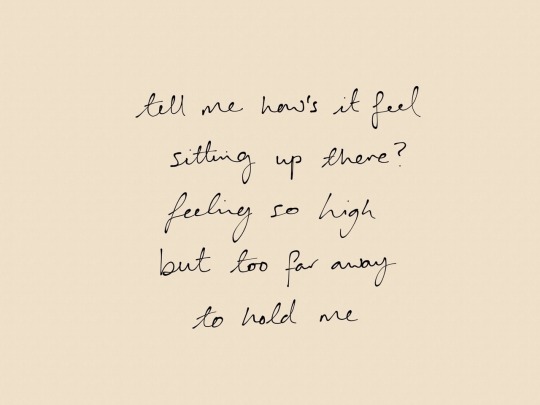 tell me how's it feel
sitting up there?
feeling so high
but too far away
to hold me